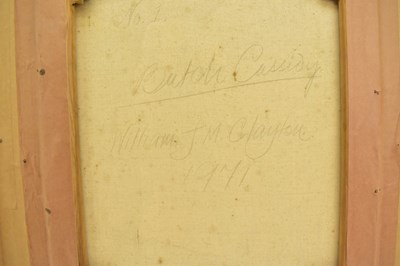 No. 2.
Butch Cassidy
William J M Clayton
1971